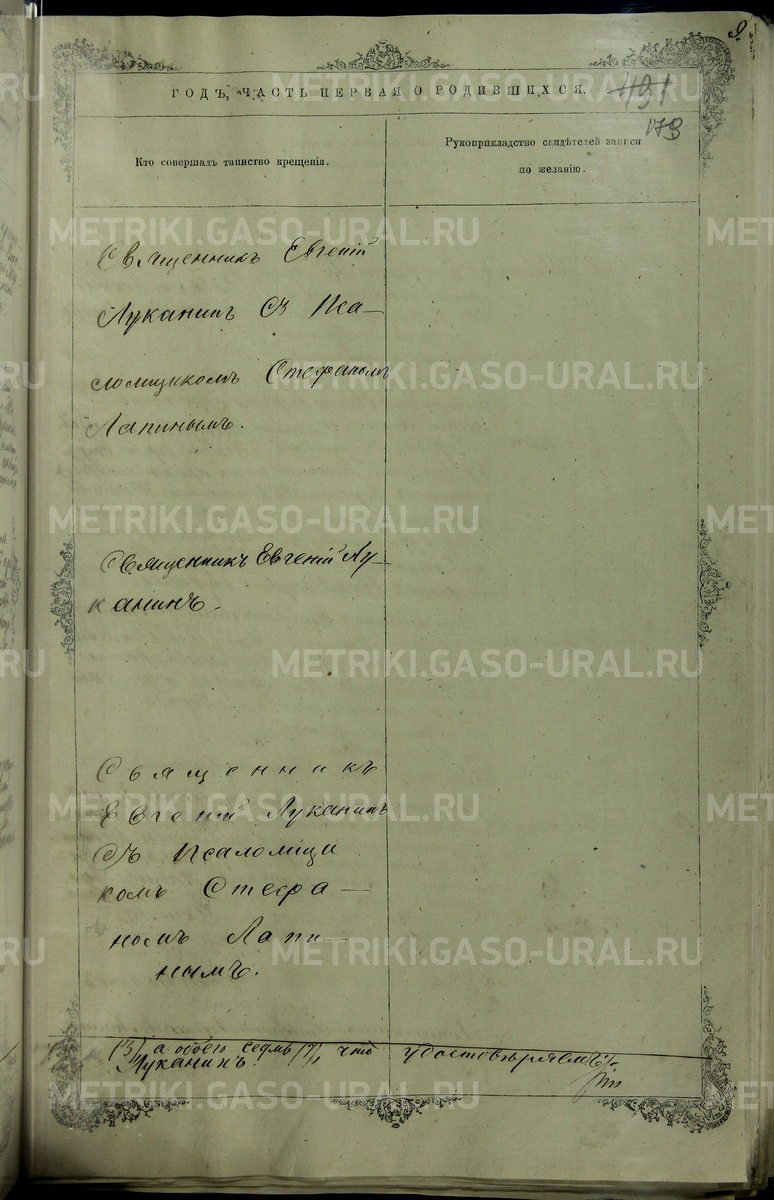 9.
ГОДЪ, ЧАСТЬ ПЕРВАЯ О РОДИВШИХСЯ.
491
173
Кто совершалъ таинство крещенія.
Рукоприкладство свидѣтелей записи
по желанію.
Священникъ Евгеній
Луканинъ съ Пса–
ломщикомъ Стефаномъ
Лапинымъ.
Священникъ Евгеній Лу–
канинъ.
Священникъ
Евгеній Луканинъ
съ Псаломщи
комъ Стефа–
номъ Лапи–
нымъ.
(3), а обоего седмь (7), что удостовѣряемъ:
Луканинъ.
METRIKI.GASO-URAL.RU